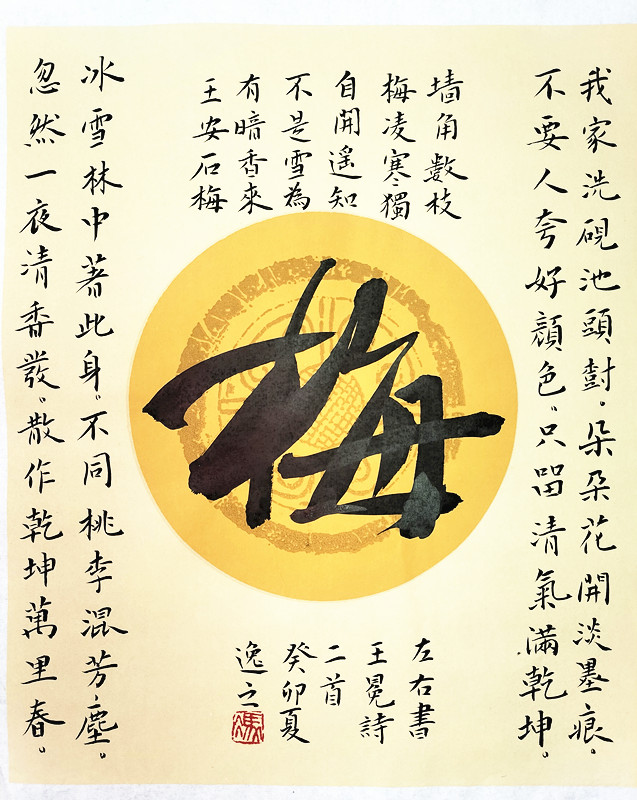 我家洗硯池頭樹。朵朵花開淡墨痕。
不要人夸好顏色。只留清氣滿乾坤。
墙角數枝
梅凌寒獨
自開遥知
不是雪為
有暗香來
王安石梅
梅
左右書
王冕詩
二首
癸卯夏
逸之
馮
冰雪林中著此身。不同桃李混芳塵。
忽然一夜清香發。散作乾坤萬里春。